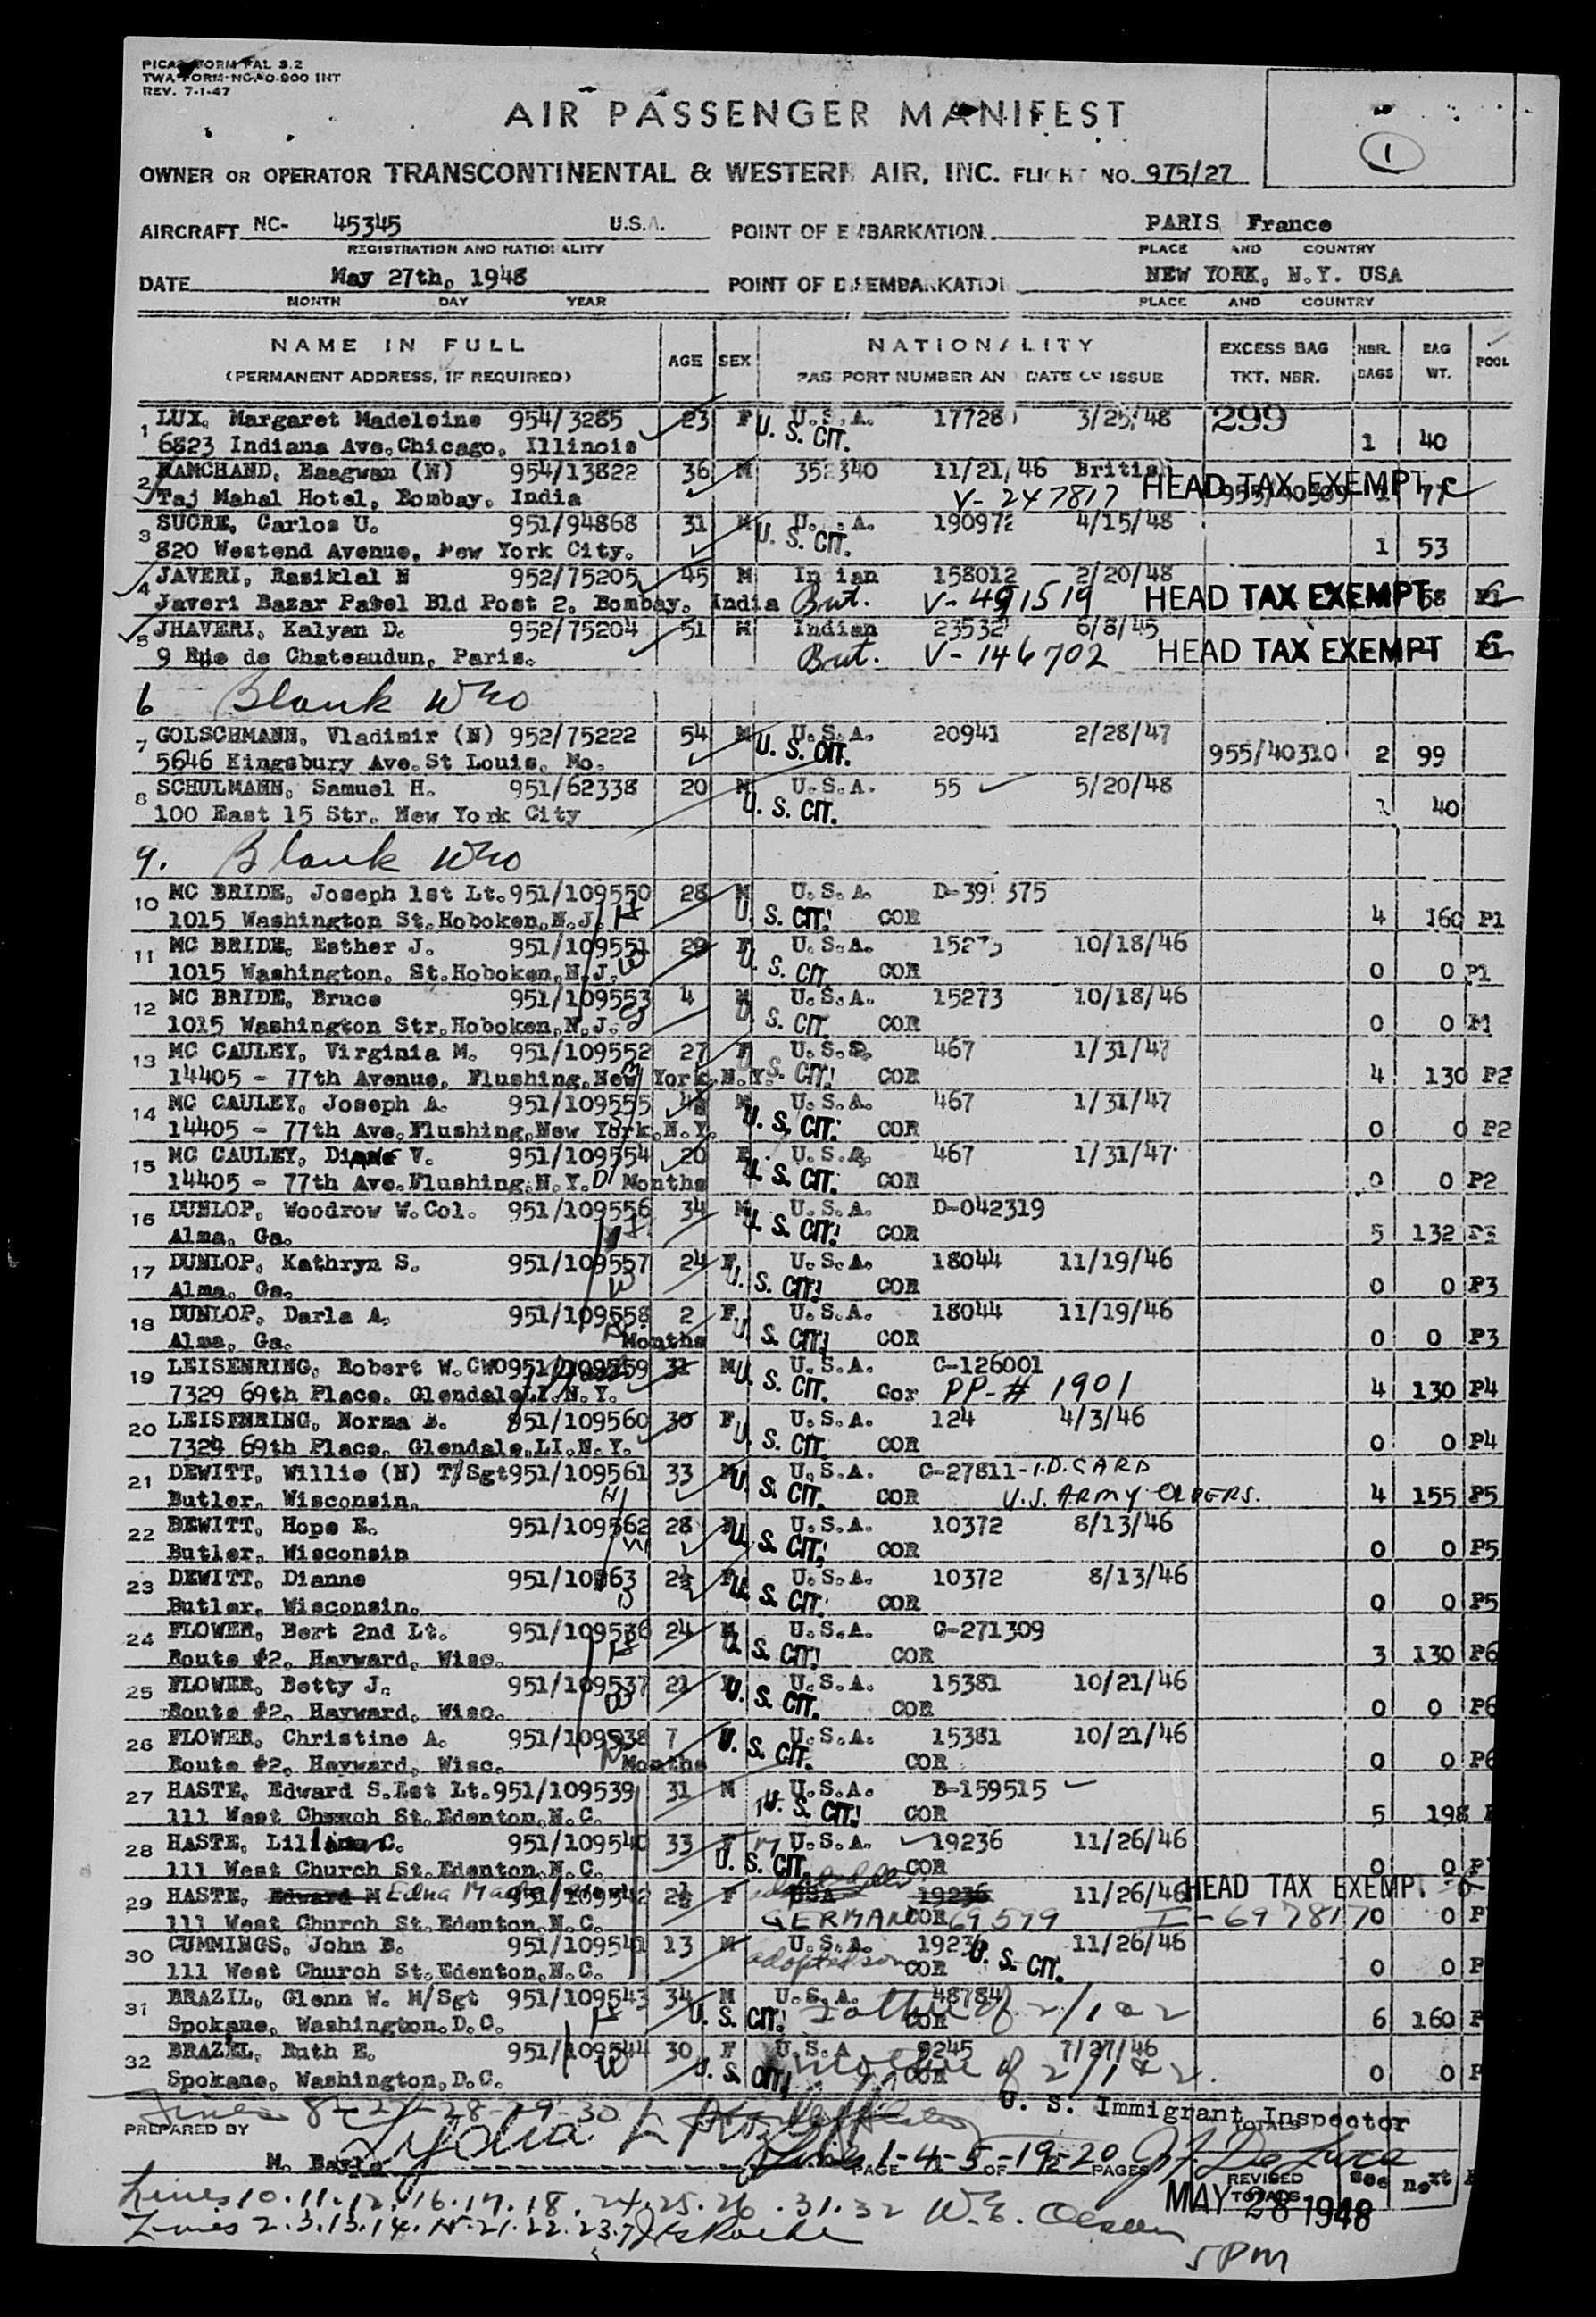 PICAO FORM FAL 3.2
TWA FORM NO. O-800 INT
REV. 7-1-47
1
AIR PASSENGER MANIFEST
OWNER OR OPERATOR TRANSCONTINENTAL & WESTERN AIR, INC. FLIGHT NO. 975/27
AIRCRAFT NC- 45345 U.S.A. POINT OF EMBARKATION PARIS France
REGISTRATION AND NATIONALITY PLACE AND COUNTRY
DATE May 27th, 1948 POINT OF DISEMBARKATION NEW YORK, N.Y. USA
MONTH DAY YEAR PLACE AND COUNTRY
NAME IN FULL AGE SEX NATIONALITY EXCESS BAG NBR. BAG POOL
(PERMANENT ADDRESS, IF REQUIRED) PASSPORT NUMBER AND DATE OF ISSUE TKT. NBR. BAGS WT.
1 LUX, Margaret Madeleine 954/3285 23 F U.S.A. 17728 3/25/48 299
6823 Indiana Ave. Chicago, Illinois U. S. CIT. 1 40
2 RAMCHAND, Baagwan (N) 954/13822 36 M 352340 11/21/46 British HEAD TAX EXEMPT
Taj Mahal Hotel, Bombay, India V-247817 955/40309 1 77
3 SUCRE, Carlos U. 951/94868 31 M U. .A. 190972 4/15/48
820 Westend Avenue, New York City. U. S. CIT. 1 53
4 JAVERI, Rasiklal N 952/75205 45 M Indian 158012 2/20/48
Javeri Bazar Patel Bld Post 2, Bombay, India Brit. V-491519 HEAD TAX EXEMPT 68 P1
5 JHAVERI, Kalyan D. 952/75204 51 M Indian 23532 6/8/45
9 Rue de Chateaudun, Paris. Brit. V-146702 HEAD TAX EXEMPT
6 Blank WEO
7 GOLSCHMANN, Vladimir (N) 952/75222 54 M U.S.A. 20941 2/28/47
5646 Kingsbury Ave. St Louis, Mo. U. S. CIT. 955/40310 2 99
8 SCHULMANN, Samuel H. 951/62338 20 M U.S.A. 55 5/20/48
100 East 15 Str. New York City U. S. CIT. 40
9. Blank WEO
10 MC BRIDE, Joseph 1st Lt. 951/109550 28 M U.S.A. D-39 375
1015 Washington St. Hoboken, N.J. H U. S. CIT. COR 4 160 P1
11 MC BRIDE, Esther J. 951/109551 29 F U.S.A. 15273 10/18/46
1015 Washington, St. Hoboken, N.J. W U. S. CIT. COR 0 0 P1
12 MC BRIDE, Bruce 951/109553 4 M U.S.A. 15273 10/18/46
1015 Washington Str. Hoboken, N.J. S U. S. CIT. COR 0 0 P1
13 MC CAULEY, Virginia M. 951/109552 27 F U.S.A. 467 1/31/47
14405 - 77th Avenue, Flushing, New York, N.Y. U. S. CIT. COR 4 130 P2
14 MC CAULEY, Joseph A. 951/109555 4½ M U.S.A. 467 1/31/47
14405 - 77th Ave. Flushing, New York, N.Y. U. S. CIT. COR 0 0 P2
15 MC CAULEY, Diane V. 951/109554 20 F U.S.A. 467 1/31/47
14405 - 77th Ave. Flushing, N.Y. D Months U. S. CIT. COR 0 0 P2
16 DUNLOP, Woodrow W. Col. 951/109556 34 M U.S.A. D-042319
Alma, Ga. H U. S. CIT. COR 5 132 P3
17 DUNLOP, Kathryn S. 951/109557 24 F U.S.A. 18044 11/19/46
Alma, Ga. W U. S. CIT. COR 0 0 P3
18 DUNLOP, Darla A. 951/109558 2 F U.S.A. 18044 11/19/46
Alma, Ga. Months U. S. CIT. COR 0 0 P3
19 LEISENRING, Robert W. CWO 951/109559 31 M U.S.A. C-126001
7329 69th Place, Glendale, LI. N.Y. U. S. CIT. Cor PP-# 1901 4 130 P4
20 LEISENRING, Norma 951/109560 30 F U.S.A. 124 4/3/46
7329 69th Place, Glendale, LI. N.Y. U. S. CIT. COR 0 0 P4
21 DEWITT, Willie (N) T/Sgt 951/109561 33 M U.S.A. C-27811-I.D. CARD
Butler, Wisconsin. H U. S. CIT. COR U.S. ARMY ORDERS. 4 155 P5
22 DEWITT, Hope E. 951/109562 28 F U.S.A. 10372 8/13/46
Butler, Wisconsin W U. S. CIT. COR 0 0 P5
23 DEWITT, Dianne 951/10563 2½ F U.S.A. 10372 8/13/46
Butler, Wisconsin. D U. S. CIT. COR 0 0 P5
24 FLOWER, Bert 2nd Lt. 951/109536 24 M U.S.A. C-271309
Route #2, Hayward, Wisc. H U. S. CIT. COR 3 130 P6
25 FLOWER, Betty J. 951/109537 21 F U.S.A. 15381 10/21/46
Route #2, Hayward, Wisc. W U. S. CIT. COR 0 0 P6
26 FLOWER, Christine A. 951/109538 7 U.S.A. 15381 10/21/46
Route #2, Hayward, Wisc. Months U. S. CIT. COR 0 0 P6
27 HASTE, Edward S. 1st Lt. 951/109539 31 M U.S.A. B-159515
111 West Church St. Edenton, N.C. U. S. CIT. COR 5 198
28 HASTE, Lillian C. 951/109540 33 F U.S.A. 19236 11/26/46
111 West Church St. Edenton, N.C. U. S. CIT. COR 0 0 P
29 HASTE, Edward M Edna 951/109542 2½ F USA 19236 11/26/46 HEAD TAX EXEMPT
111 West Church St. Edenton, N.C. GERMAN COR 69599 I-697817 0 0 P
30 CUMMINGS, John B. 951/109541 13 M U.S.A. 19236 11/26/46
111 West Church St. Edenton, N.C. adopted son COR U. S. CIT. 0 0 P
31 BRAZIL, Glenn W. M/Sgt 951/109543 34 M U.S.A. 48784
Spokane, Washington. D.C. H U. S. CIT. Father of 2/1 & 2 COR 6 160 P
32 BRAZEL, Ruth E. 951/109544 30 F U.S.A 9245 7/27/46
Spokane, Washington, D.C. W U. S. CIT. Mother of 2/1 & 2. COR 0 0 P
Lines 8-27-28-29-30
U. S. Immigrant Inspector
TOTALS
PREPARED BY
Lines 1-4-5-19-20
PAGE OF PAGES REVISED TOTALS see next
Lines 10.11.12.16.17.18.24.25.26.31.32 W.E. Olsen
Lines 2.3.13.14.15.21.22.23.7
MAY 28 1948
5 PM